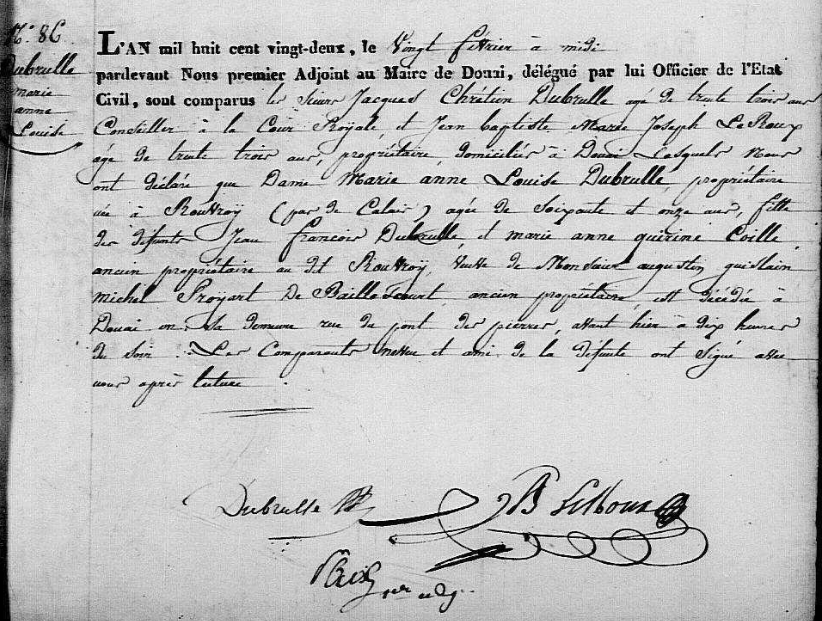 N.° 86
Dubrulle
marie
anne
Louise
L'AN mil huit cent vingt-deux, le Vingt fevrier à midi
pardevant Nous premier Adjoint au Maire de Douai, délégué par lui Officier de l'Etat
Civil, sont comparus les Sieurs Jacques Chrétien Dubrulle agé de trente trois ans
Conseiller à la Cour Royale, et Jean baptiste Marie Joseph Le Roux
agé de trente trois ans, propriétaire, domiciliés à Douai Lesquels Nous
ont déclaré que Dame Marie anne Louise Dubrulle, propriétaire
née à Rouvroy (pas de Calais) agée de Soixante et onze ans, fille
des defunts Jean françois Dubrulle et marie anne quirine Coille
ancien propriétaire au dit Rouvroy, Veuve de Monsieur augustin guislain
michel Froyart De Baillescourt, ancien propriétaire, est décédée à
Douai en sa demeure rue du pont des pierres, avant hier à dix heures
du soir. Les Comparants neveu et ami de la defunte ont Signé avec
nous après lecture.
Dubrulle
LeRoux
1er adj.